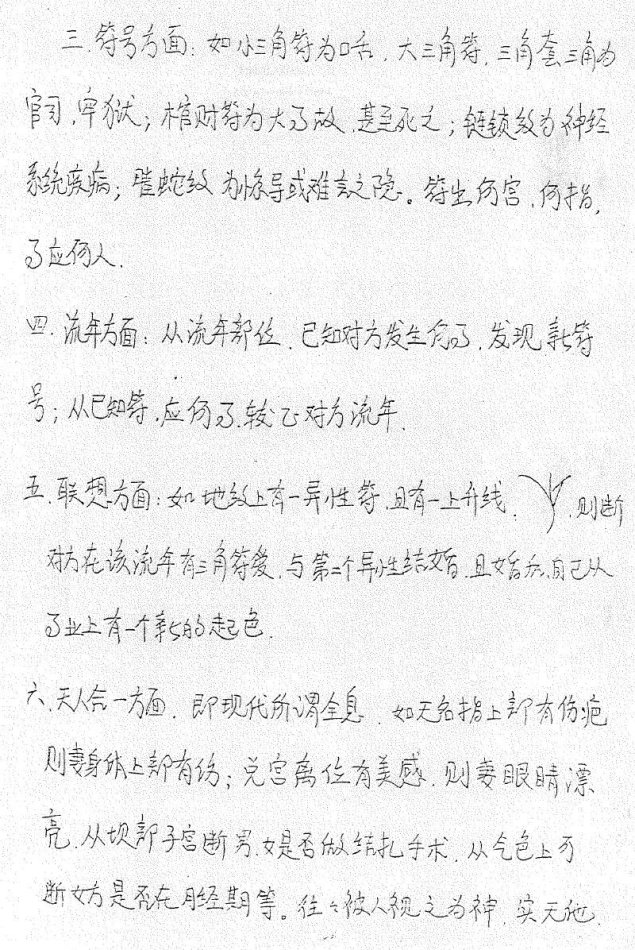 三.符号方面：如小三角符为口舌，大三角符，三角套三角为
官司，牢狱；棺财符为大了故，甚至死亡；链锁纹为神经
系统疾病；蛇纹为难言之隐。符出何宫，何指，
了应何人.
四.流年方面：从流年部位，已知对方发生何了，发现新符
号；从已知符，应何了，较正对方流年.
五.联想方面：如地纹上有一异性符，且有一上升线，则断
对方在该流年有三角符爱，与第二个异性结婚，且婚后自己从
了业上有一个新的起色.
六.天人合一方面，即现代所谓全息，如无名指上部有伤疤
则妻身体上部有伤；兑宫离位有美感，则妻眼睛漂
亮，从坎部子宫断男.女是否做结扎手术，从气色上可
断女方是否在月经期等。往々被人视之为神，实无他.